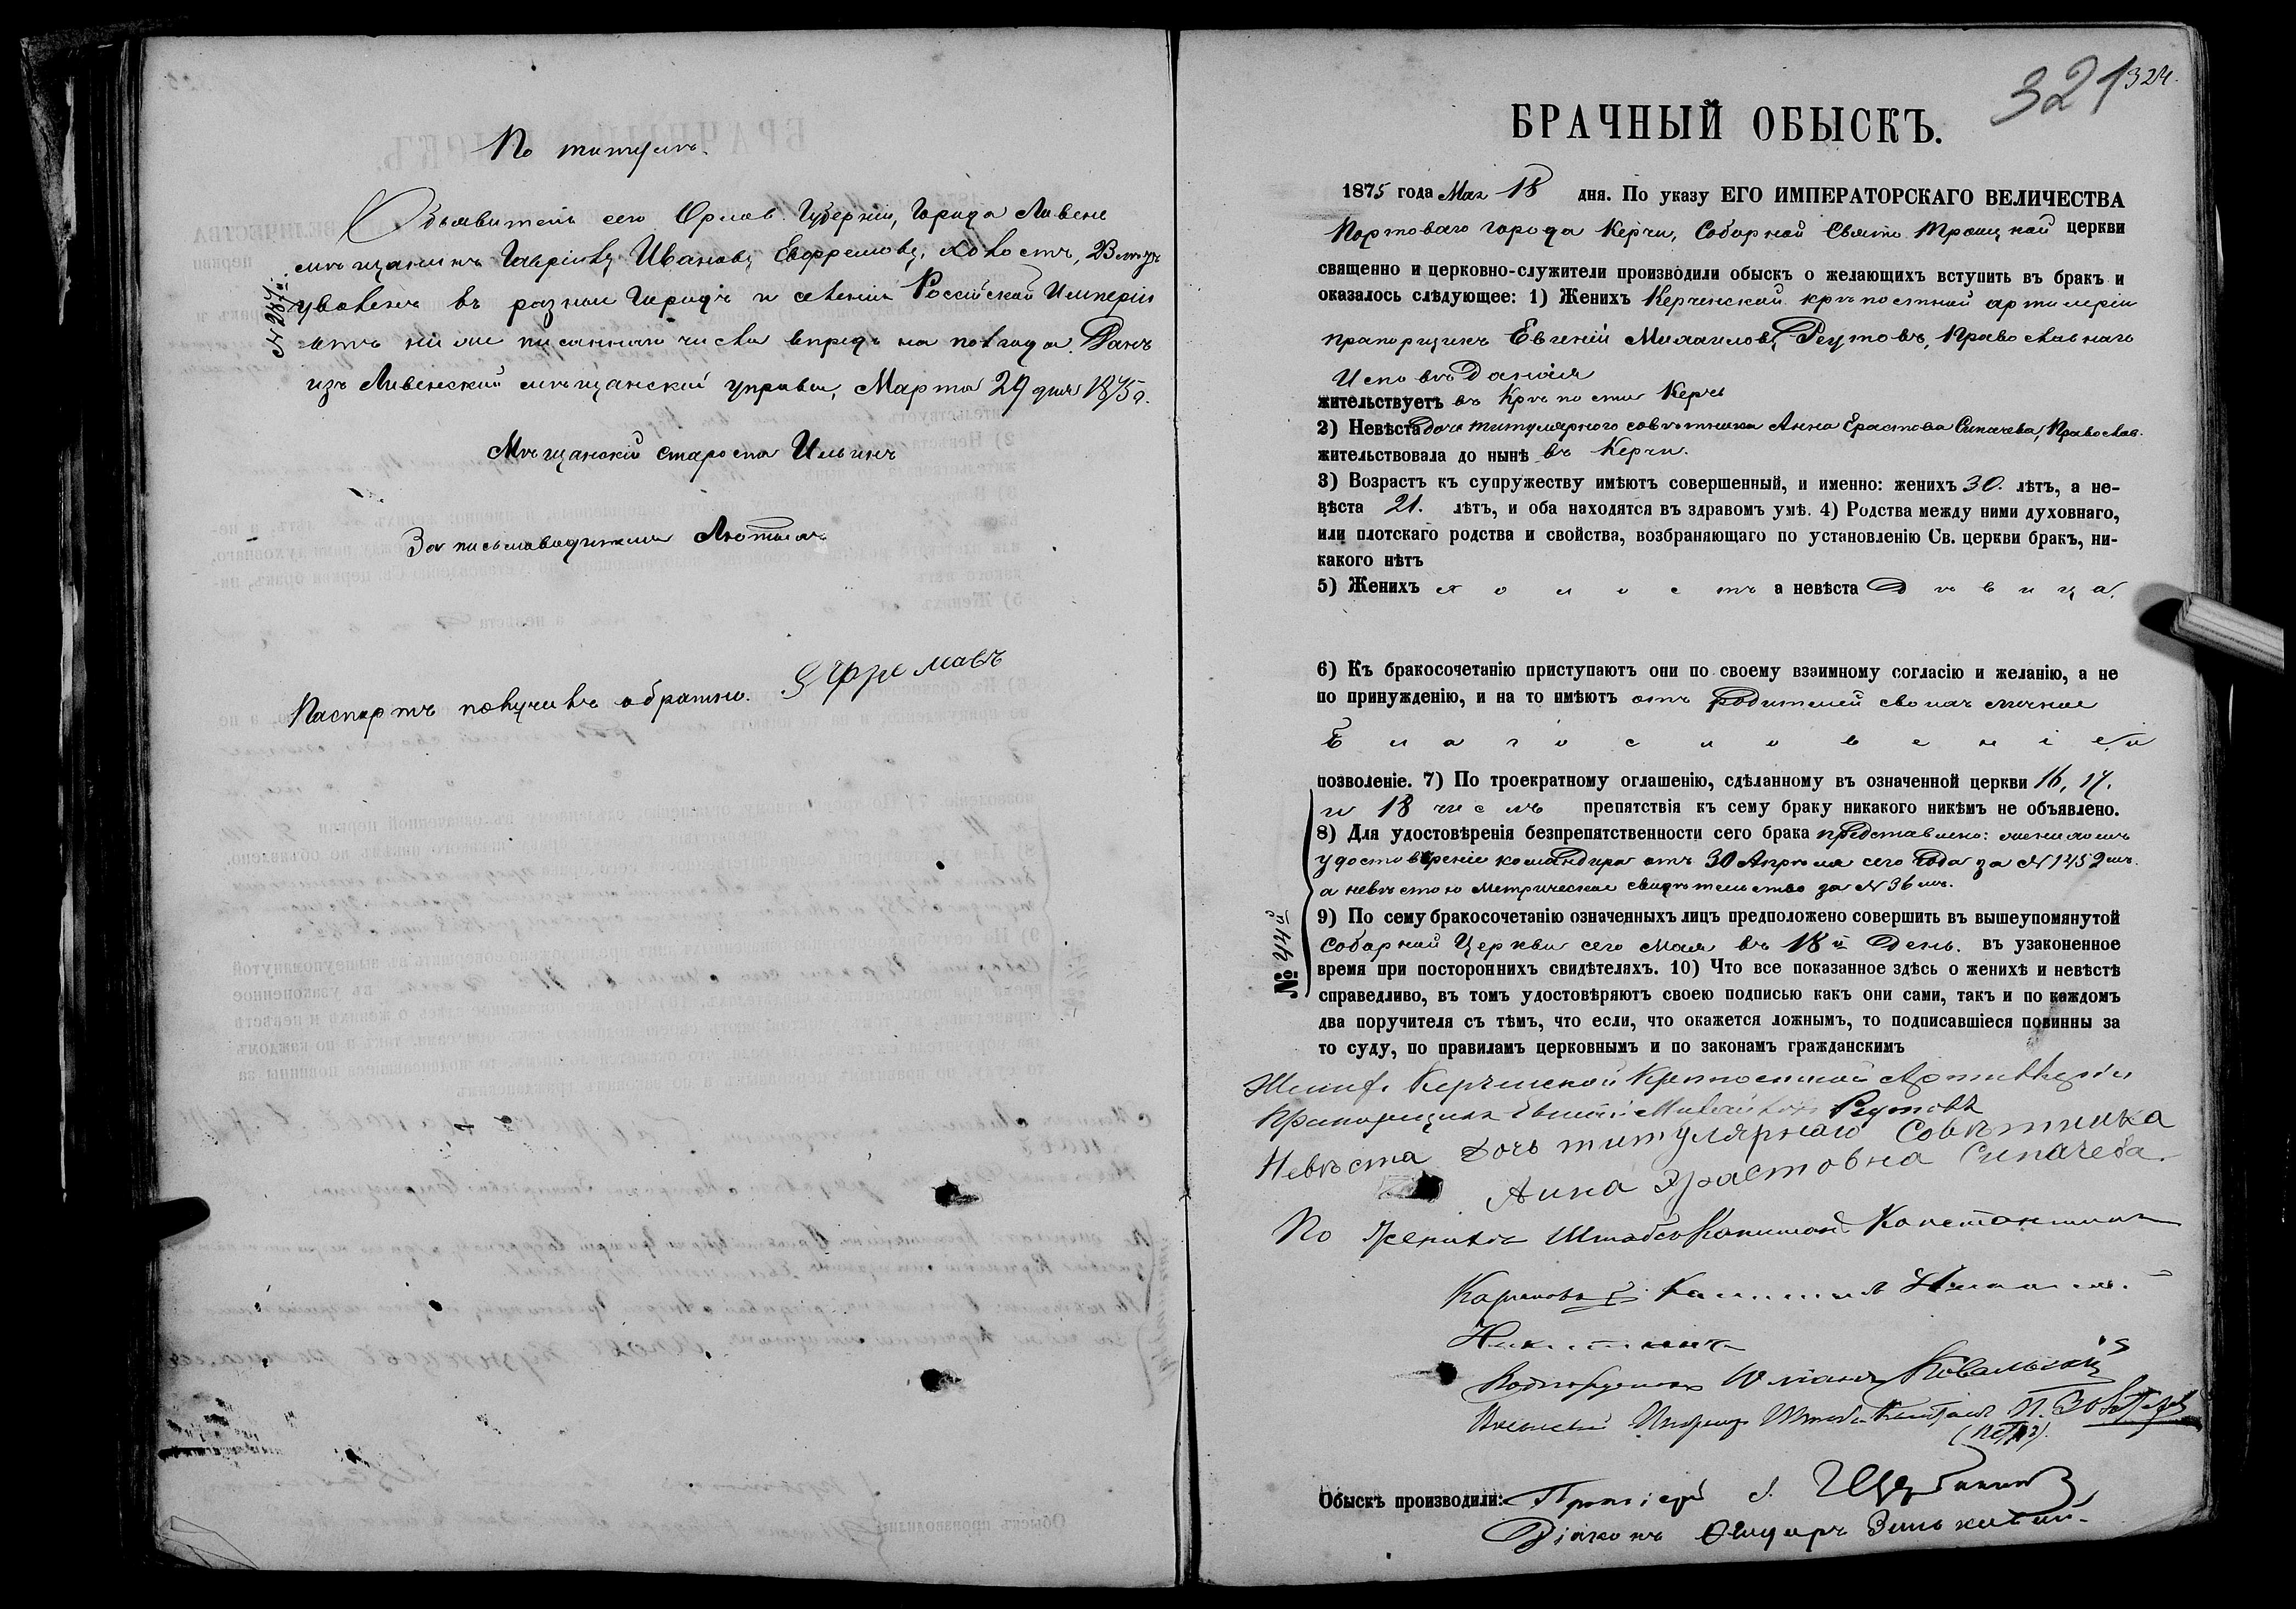 По титулѣ.
Объявитель сего Орлов. Губерніи, города Ливенъ
мѣщанинъ Гавріилъ Ивановъ Ефремовъ, холостъ,
№ 284й
уволенъ въ разные города и селенія Россійской Имперіи
отъ ниже писаннаго числа впредь на полгода. Данъ
изъ Ливенской мѣщанской управы, Марта 29 дня 1875 г.
Мѣщанскій староста Ильинъ
За письмоводителя
Паспортъ получилъ обратно. Ефремовъ
321 324.
БРАЧНЫЙ ОБЫСКЪ.
1875 года Мая 18 дня. По указу ЕГО ИМПЕРАТОРСКАГО ВЕЛИЧЕСТВА
Портоваго города Керчи, Соборной Свято Троицкой церкви
священно и церковно-служители производили обыскъ о желающихъ вступить въ бракъ и
оказалось слѣдующее: 1) Женихъ Керченской крѣпостной артилеріи
прапорщикъ Евгеній Михаиловъ Реутовъ, Православнаго
Исповѣданія
жительствуетъ въ Крѣпости Керчь
2) Невѣста дочь титулярного совѣтника Анна Ерастова Сипачева, Православ.
жительствовала до нынѣ въ Керчи.
3) Возрастъ къ супружеству имѣютъ совершенный, и именно: женихъ 30. лѣтъ, а не-
вѣста 21. лѣтъ, и оба находятся въ здравомъ умѣ. 4) Родства между ними духовнаго,
или плотскаго родства и свойства, возбраняющаго по установленію Св. церкви бракъ, ни-
какого нѣтъ
5) Женихъ холостъ а невѣста Дѣвица.
6) Къ бракосочетанію приступаютъ они по своему взаимному согласію и желанію, а не
по принужденію, и на то имѣютъ отъ родителей своихъ личное
Благословеніе и
позволеніе. 7) По троекратному оглашенію, сдѣланному въ означенной церкви 16, 17.
и 18 числъ препятствія къ сему браку никакого никѣмъ не объявлено.
8) Для удостовѣренія безпрепятственности сего брака представлено: женихомъ
удостовѣреніе командира отъ 30 Апрѣля сего года за №
а невѣстою метрическое свидѣтельство за № 36мъ.
№ 44й
9) По сему бракосочетанію означенныхъ лицъ предположено совершить въ вышеупомянутой
соборной Церкви сего Мая въ 18й День. въ узаконенное
время при постороннихъ свидѣтеляхъ. 10) Что все показанное здѣсь о женихѣ и невѣстѣ
справедливо, въ томъ удостовѣряютъ своею подписью какъ они сами, такъ и по каждомъ
два поручителя съ тѣмъ, что если, что окажется ложнымъ, то подписавшіеся повинны за
то суду, по правиламъ церковнымъ и по законамъ гражданскимъ
Женихъ Керченской Крѣпостной Артиллеріи
Прапорщикъ Евгеній Михайловъ Реутовъ
Невѣста дочь титулярнаго Совѣтника
Анна Эрастовна Сипачева.
По женихѣ Штабсъ Капитанъ Константинъ
Никитинъ
Подпоручикъ Юліанъ Ковальскій
Штабсъ Капитанъ П.
(Петръ).
Обыскъ производили: Протоіерей
Діаконъ Ѳеодоръ Зинькевичъ.